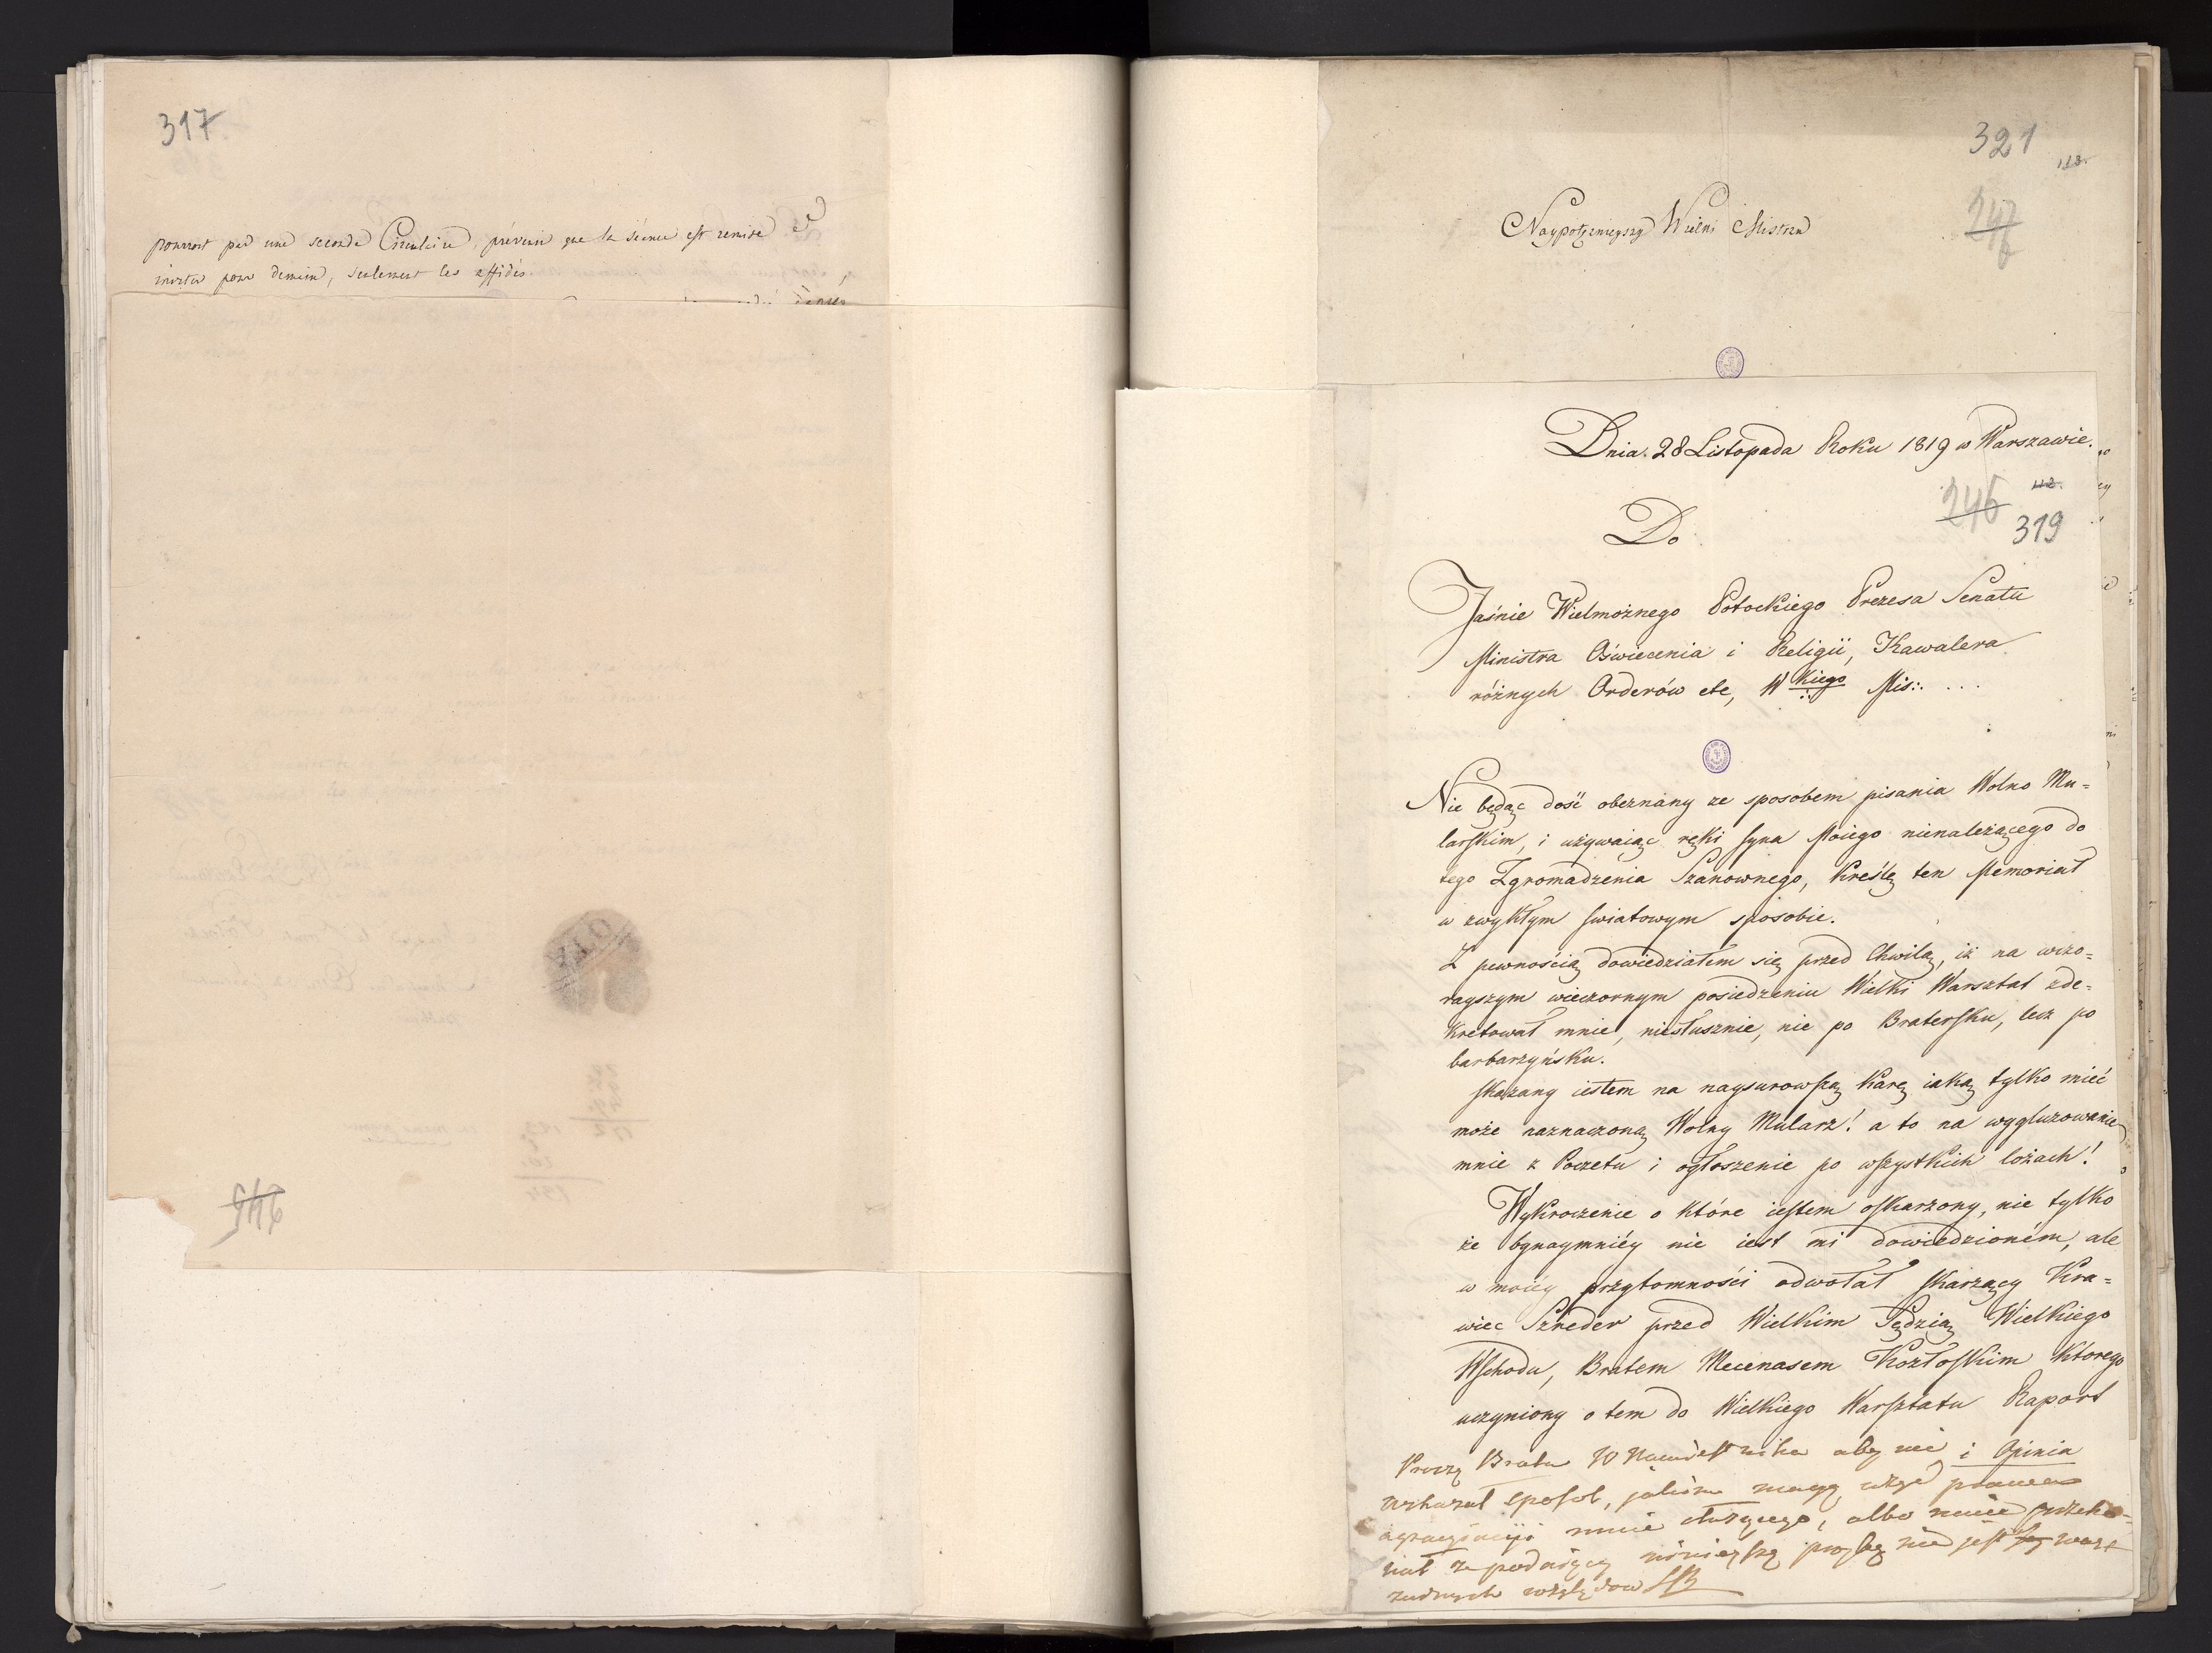 317
pourroit par une seconde Circulaire, prévenir que la séance est remise et
inviter pour demain, seulement les affidés.
245
321
113.
247
Naypotężnieyszy Wielki Mistrzu
Dnia. 28 Listopada Roku 1819 w Warszawie.
246 112.
319
Do
Jaśnie Wielmożnego Potockiego Prezesa Senatu
Ministra Oświecenia i Religii, Kawalera
różnych Orderów etc, W kiego Mis:. ...
Nie będąc dość obeznany ze sposobem pisania Wolno Mu=
larskim, i używaiąc ręki syna Moiego nienależącego do
tego Zgromadzenia Szanownego, kreślę ten Memoriał
w zwykłym swiatowym sposobie.
Z pewnością dowiedziałem się przed Chwilą, iż na wczo=
rayszym wieczornym posiedzeniu Wielki Warsztat zde=
kretował mnie, niesłusznie, nie po Bratersku, lecz po
barbarzyńsku.
skazany iestem na naysurowszą karę iaką tylko mieć
może naznaczoną Wolny Mularz! a to na wygluzowanie
mnie z Pocztu i ogłoszenie po wszystkich lożach!
Wykroczenie o które iestem oskarzony, nie tylko
że bynaymniéy nie iest mi dowiedzioném, ale
w moiéy przytomności odwołał skarzący Kra=
wiec Szreder przed Wielkim Sędzią Wielkiego
Wschodu, Bratem Mecenasem Kozłoskim którego
uczyniony o tem do Wielkiego Warsztatu Raport
i Opinia
Proszę Brata W Namiestnika aby mi
wskazał sposob, jakim mogę użyć prawa
agraciacyi mnie służącego, albo mnie przeko=
nał że podaiący ninieyszą prozbę nie jest wart
żadnych względow